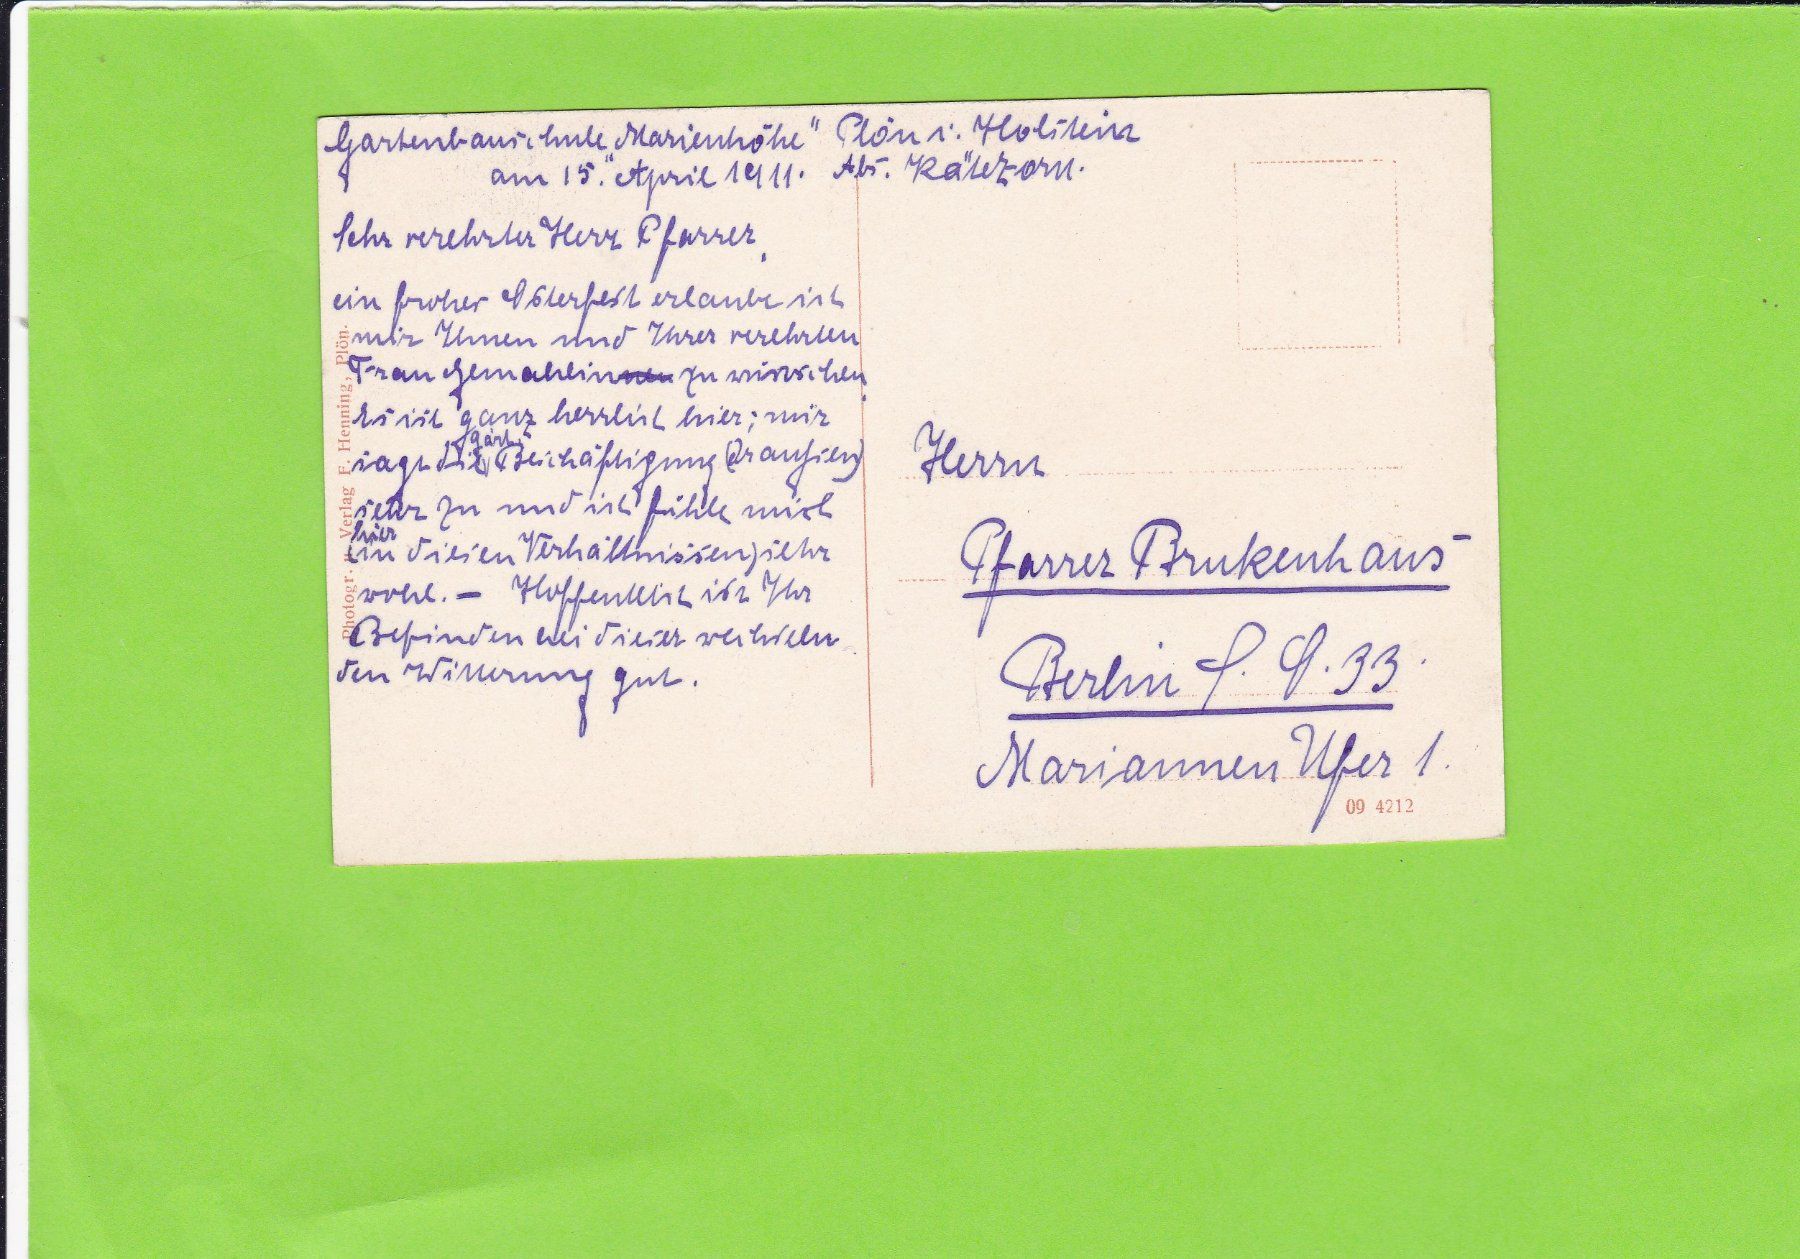 Gartenbauschule „Marienhöhe" Plön i. Holstein
am 15. April 1911. Abs. Käte Zorn.
Sehr verehrter Herr Pfarrer,
ein frohes Osterfest erlaube ich
mir Ihnen und Ihrer verehrten
Frau Gemahlin zu wünschen.
Es ist ganz herrlich hier; mir
sagt die gärt. Beschäftigung (draußen)
sehr zu und ich fühle mich
hier
(in diesen Verhältnissen) sehr
wohl. — Hoffentlich ist Ihr
Befinden bei dieser wechseln
den Witterung gut.
Photogr. u. Verlag F. Henning, Plön.
Herrn
Pfarrer Brukenhaus
Berlin S. O. 33.
Mariannen Ufer 1.
09 4212